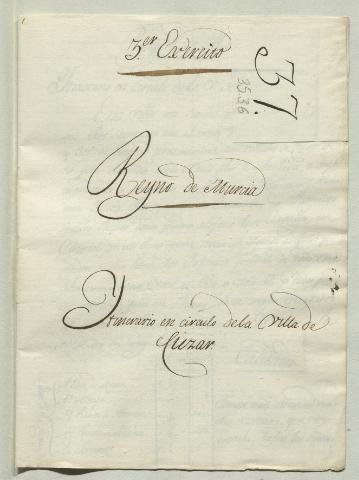 3.er Exercito
37.
3536
Reyno de Murcia
Ytinerario en circulo de la Villa de
Cúzar.